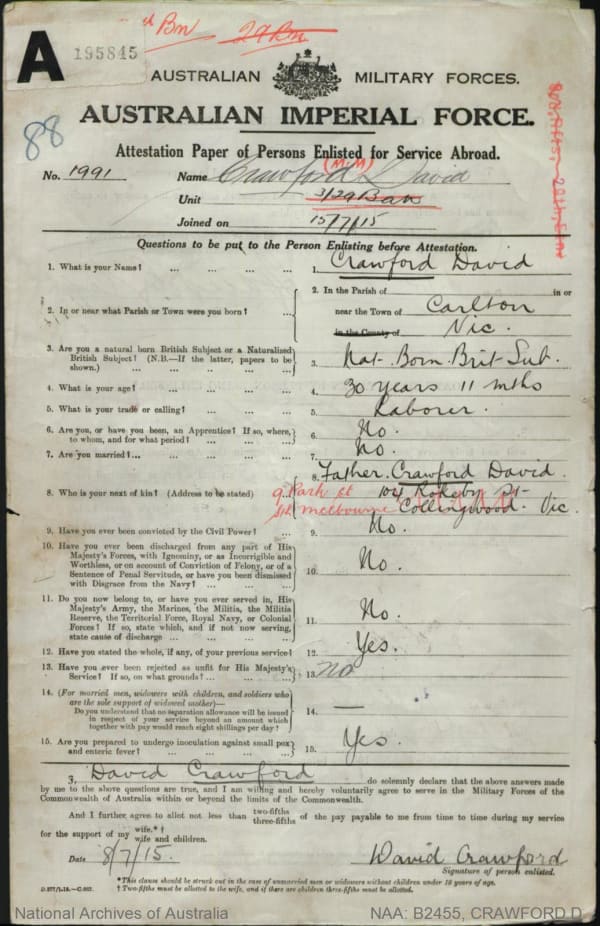 A
195845
th Bn 29 Bn
88
AUSTRALIAN MILITARY FORCES.
AUSTRALIAN IMPERIAL FORCE.
Attestation Paper of Persons Enlisted for Service Abroad.
(M.M)
No. 1991 Name Crawford David
Unit 3/29 Ban
Joined on 15/7/15
Questions to be put to the Person Enlisting before Attestation.
1. What is your Name? ... ... ... ... 1. Crawford David
2. In or near what Parish or Town were you born? ... 2. In the Parish of in or
near the Town of Carlton
in the County of Vic.
3. Are you a natural born British Subject or a Naturalized
British Subject? (N.B.—If the latter, papers to be
shown.) ... ... ... ... ... 3. Nat. Born. Brit. Sub.
4. What is your age? ... ... ... ... 4. 30 years 11 mths
5. What is your trade or calling? ... ... ... 5. Laborer.
6. Are you, or have you been, an Apprentice? If so, where,
to whom, and for what period? ... ... ... 6. No.
7. Are you married?... ... ... ... ... 7. No.
8. Father. Crawford David.
8. Who is your next of kin? (Address to be stated) 9 Park St 104 Rokeby St-
Sth Melbourne Collingwood. Vic.
9. Have you ever been convicted by the Civil Power? ... 9. No.
10. Have you ever been discharged from any part of His
Majesty's Forces, with Ignominy, or as Incorrigible and
Worthless, or on account of Conviction of Felony, or of a
Sentence of Penal Servitude, or have you been dismissed
with Disgrace from the Navy? ... ... ... 10. No.
11. Do you now belong to, or have you ever served in, His
Majesty's Army, the Marines, the Militia, the Militia
Reserve, the Territorial Force, Royal Navy, or Colonial
Forces? If so, state which, and if not now serving,
state cause of discharge ... ... ... ... 11. No.
12. Have you stated the whole, if any, of your previous service? 12. Yes.
13. Have you ever been rejected as unfit for His Majesty's
Service? If so, on what grounds? ... ... ... 13. No
14. (For married men, widowers with children, and soldiers who
are the sole support of widowed mother)—
Do you understand that no separation allowance will be issued
in respect of your service beyond an amount which
together with pay would reach eight shillings per day? 14. —
15. Are you prepared to undergo inoculation against small pox
and enteric fever? ... ... ... ... 15. Yes.
I, David Crawford do solemnly declare that the above answers made
by me to the above questions are true, and I am willing and hereby voluntarily agree to serve in the Military Forces of the
Commonwealth of Australia within or beyond the limits of the Commonwealth.
And I further agree to allot not less than two-fifths three-fifths of the pay payable to me from time to time during my service
for the support of my wife.*† wife and children.
Date 8/7/15. David Crawford
Signature of person enlisted.
*This clause should be struck out in the case of unmarried men or widowers without children under 18 years of age.
† Two-fifths must be allotted to the wife, and if there are children three-fifths must be allotted.
National Archives of Australia NAA: B2455, CRAWFORD D